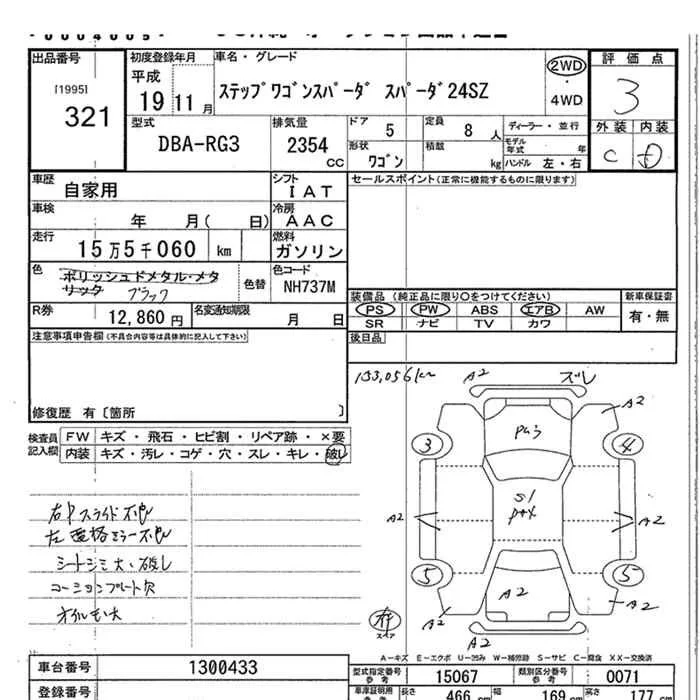 出品番号 初度登録年月 車名・グレード 評価点
[1995] 321
平成 19 11月
ステップワゴンスパーダ スパーダ24SZ
2WD・4WD
3
型式 DBA-RG3
排気量 2354 CC
ドア 5
定員 8人
ディーラー・並行
外装 内装
C D
形状 ワゴン
積載 kg
モデル年式 年
ハンドル 左・右
車歴 自家用
シフト IAT
セールスポイント(正常に機能するものに限ります)
車検 年 月( 日)
冷房 AAC
走行 15万5千060 km
燃料 ガソリン
色 ポリッシュドメタル・メタリック ブラック
色替
色コード NH737M
装備品 (純正品に限り○をつけてください)
新車保証書
PS PW ABS エアB AW
SR ナビ TV カワ
有・無
R券 12,860円
名変通知期限 月 日
注意事項申告欄(不具合内容等は具体的に記入して下さい)
後日品
修復歴 有〔箇所 〕
検査員記入欄
FW キズ・飛石・ヒビ割・リペア跡・×要
内装 キズ・汚レ・コゲ・穴・スレ・キレ・破レ
A2 ズレ
A2
3 4
A2 A2
5 5
A2
A2 A2
A2
コーションプレート欠
A-キズ E-エクボ U-凹み W-補修跡 S-サビ C-腐食 XX-交換済
車台番号 1300433
型式指定番号 参考 15067
類別区分番号 参考 0071
登録番号
車庫証明用 参考
長さ 466 cm
幅 169 cm
高さ 177 cm